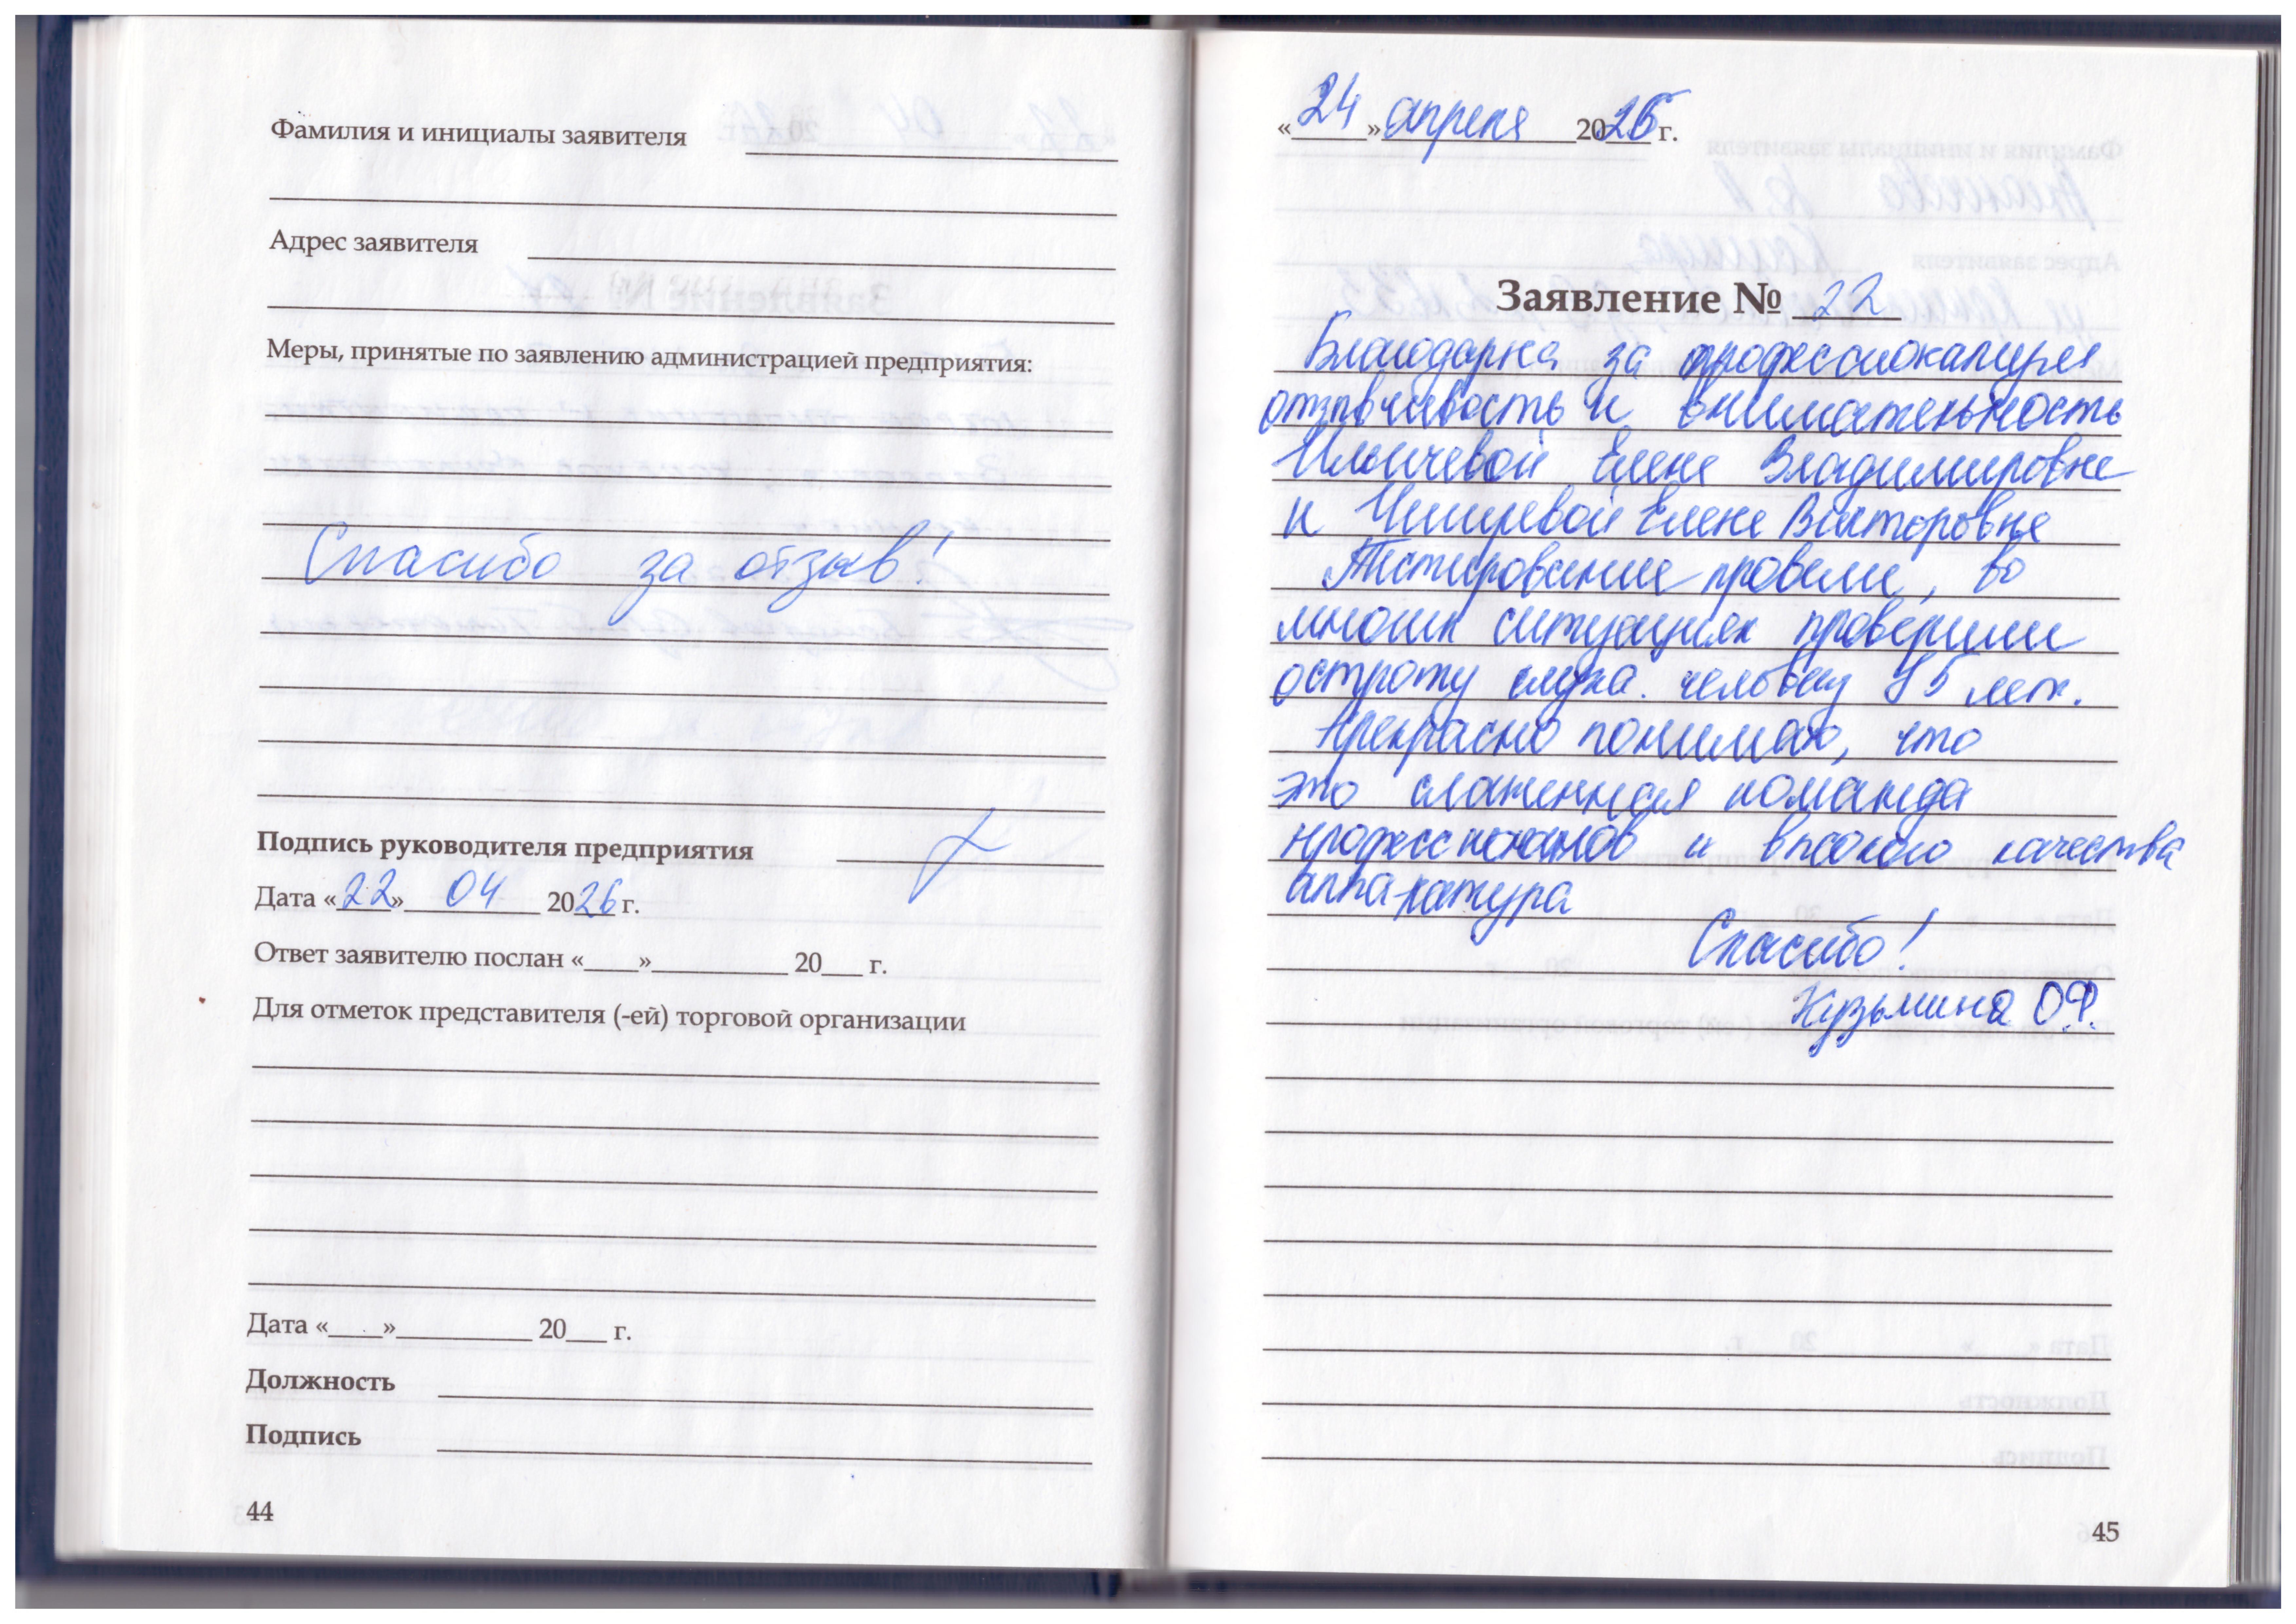 Фамилия и инициалы заявителя
Адрес заявителя
Меры, принятые по заявлению администрацией предприятия:
Спасибо за отзыв!
Подпись руководителя предприятия
Дата «22» 04 2026 г.
Ответ заявителю послан «____»__________ 20___ г.
Для отметок представителя (-ей) торговой организации
Дата «____»__________ 20___ г.
Должность
Подпись
44
«24» апреля 2026 г.
Заявление № 22
Благодарна за профессионализм
отзывчивость и внимательность
Ильичевой Елене Владимировне
и Елене Викторовне
Тестирование провели, во
многих ситуациях проверили
остроту слуха. человеку 85 лет.
Прекрасно понимаю, что
это слаженная команда
профессионалов и высокого качества
аппаратура
Спасибо!
Кузьмина О.Ф.
45